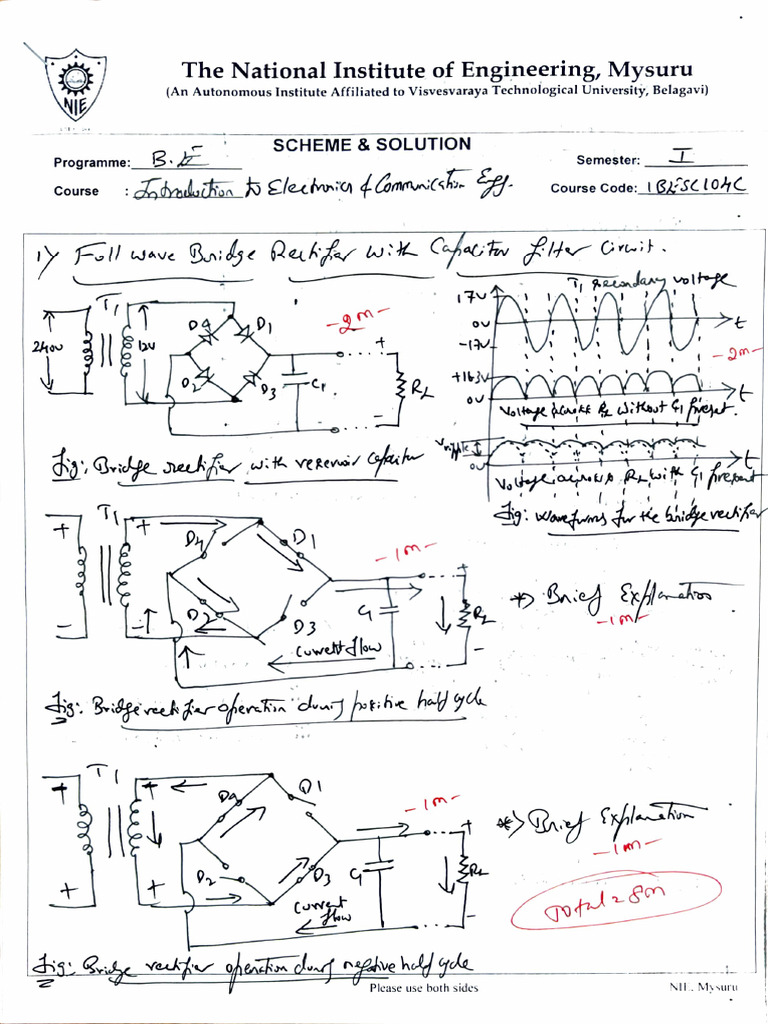 NIE
The National Institute of Engineering, Mysuru
(An Autonomous Institute Affiliated to Visvesvaraya Technological University, Belagavi)
SCHEME & SOLUTION
Programme: B.E
Semester: I
Course : Introduction to Electronics & Communication Egg.
Course Code: 1BESC104C
1) Full wave Bridge Rectifier with Capacitor filter Circuit.
T1
240v
12v
D4
D1
D2
D3
C1
-2m-
+
-
RL
T1 secondary voltage
17v
0v
-17v
t
-2m-
+16.3v
0v
t
Voltage across RL without C1 present.
Vripple
0v
t
Voltage across RL with C1 present
Fig: Waveforms for the bridge rectifier
Fig: Bridge rectifier with reservoir capacitor
T1
+
-
+
-
D4
D1
D2
D3
-1m-
C1
+
RL
-
current flow
*) Brief Explanation
-1m-
Fig: Bridge rectifier operation during positive half cycle
T1
+
+
+
+
D4
D1
D2
D3
-1m-
C1
+
RL
-
current flow
*) Brief Explanation
-1m-
Total = 8m
Fig: Bridge rectifier operation during negative half cycle
Please use both sides
NIE, Mysuru